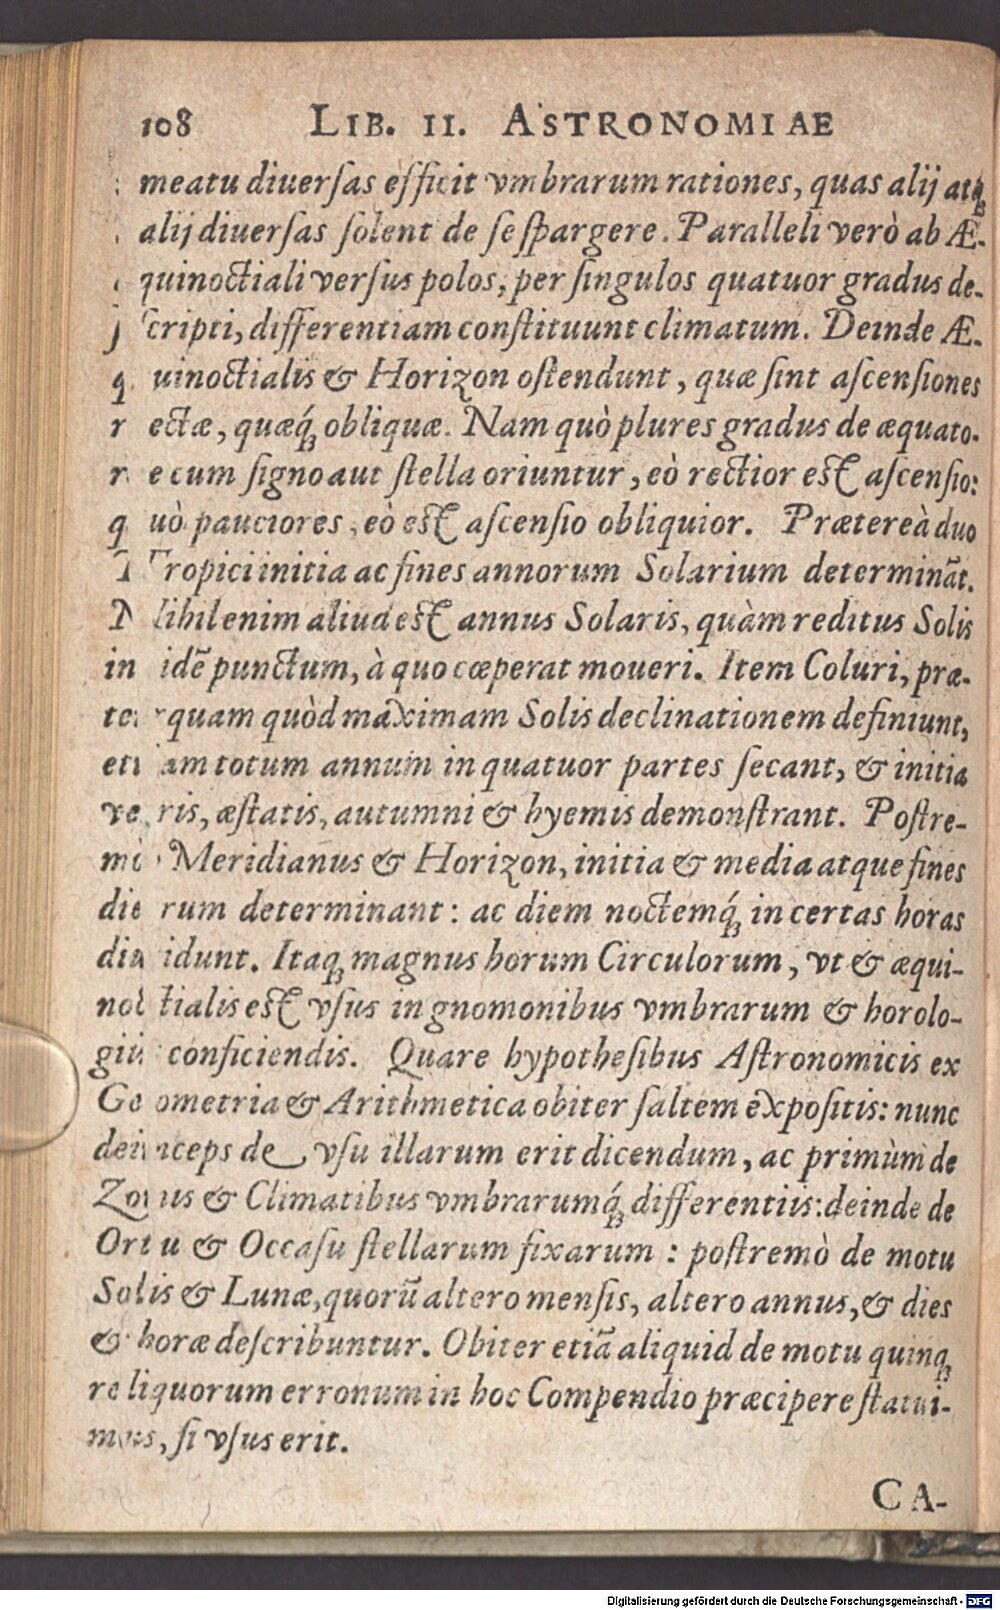 108 LIB. II. ASTRONOMIAE
meatu diuerſas efficit vmbrarum rationes, quas alij atq́;
alij diuerſas ſolent de ſe ſpargere. Paralleli verò ab Æ-
quinoctiali verſus polos, per ſingulos quatuor gradus de-
ſcripti, differentiam conſtituunt climatum. Deinde Æ-
quinoctialis & Horizon oſtendunt, quæ ſint aſcenſiones
rectæ, quæq́; obliquæ. Nam quò plures gradus de æquato-
re cum ſigno aut ſtella oriuntur, eò rectior eſt aſcenſio:
quò pauciores, eò eſt aſcenſio obliquior. Prætereà duo
Tropici initia ac fines annorum Solarium determinãt.
Nihil enim aliud eſt annus Solaris, quàm reditus Solis
in idẽ punctum, à quo cœperat moueri. Item Coluri, præ-
terquam quòd maximam Solis declinationem definiunt,
etiam totum annum in quatuor partes ſecant, & initia
veris, æſtatis, autumni & hyemis demonſtrant. Poſtre-
mò Meridianus & Horizon, initia & media atque fines
dierum determinant: ac diem noctemq́; in certas horas
diuidunt. Itaq; magnus horum Circulorum, vt & æqui-
noctialis eſt vſus in gnomonibus vmbrarum & horolo-
giis conficiendis. Quare hypotheſibus Aſtronomicis ex
Geometria & Arithmetica obiter ſaltem expoſitis: nunc
deinceps de vſu illarum erit dicendum, ac primùm de
Zonis & Climatibus vmbrarumq́; differentiis: deinde de
Ortu & Occaſu ſtellarum fixarum : poſtremò de motu
Solis & Lunæ, quorũ altero menſis, altero annus, & dies
& horæ deſcribuntur. Obiter etiã aliquid de motu quinq;
reliquorum erronum in hoc Compendio præcipere ſtatui-
mus, ſi vſus erit.
CA-
Digitalisierung gefördert durch die Deutsche Forschungsgemeinschaft - DFG